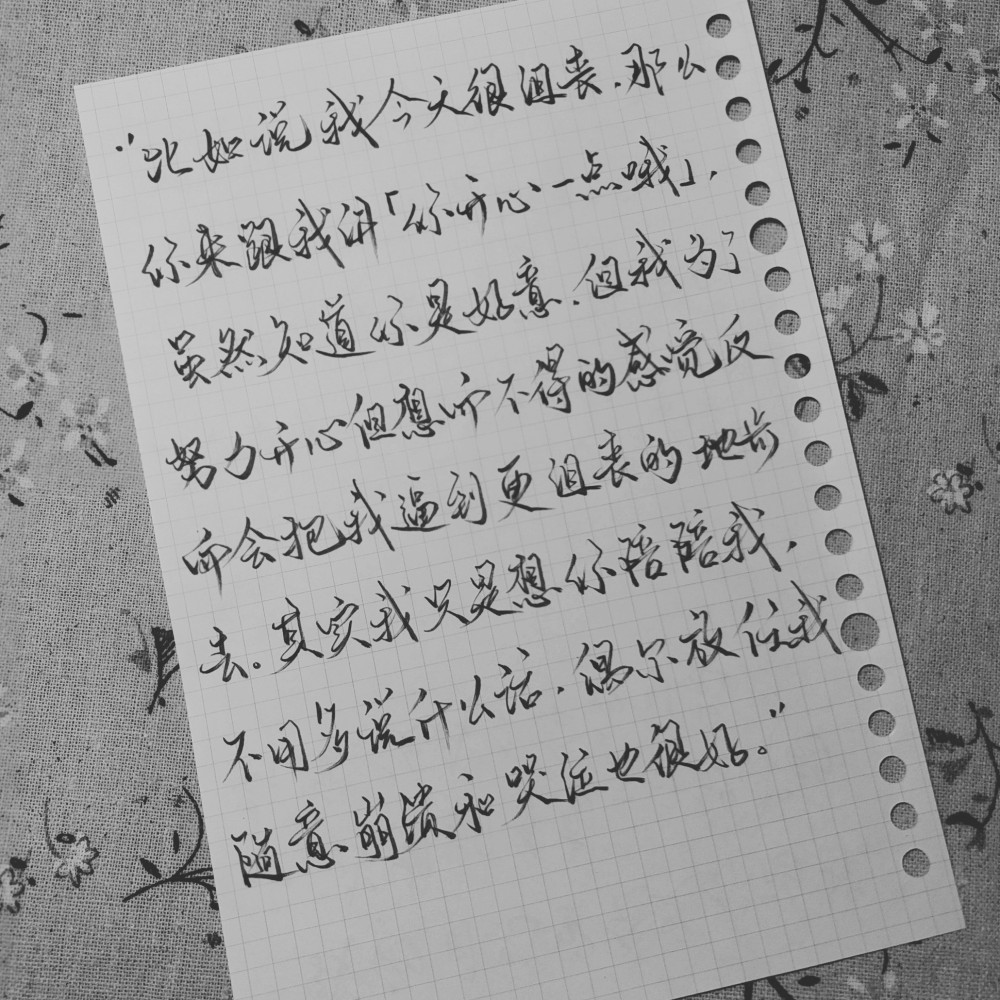 “比如说我今天很沮丧，那么
你来跟我讲「你开心一点哦」，
虽然知道你是好意，但我为了
努力开心但想听不得的感觉反
而会把我逼到更沮丧的地步
去。其实我只是想你陪陪我，
不用多说什么话，偶尔放任我
随意崩溃和哭泣也很好。”